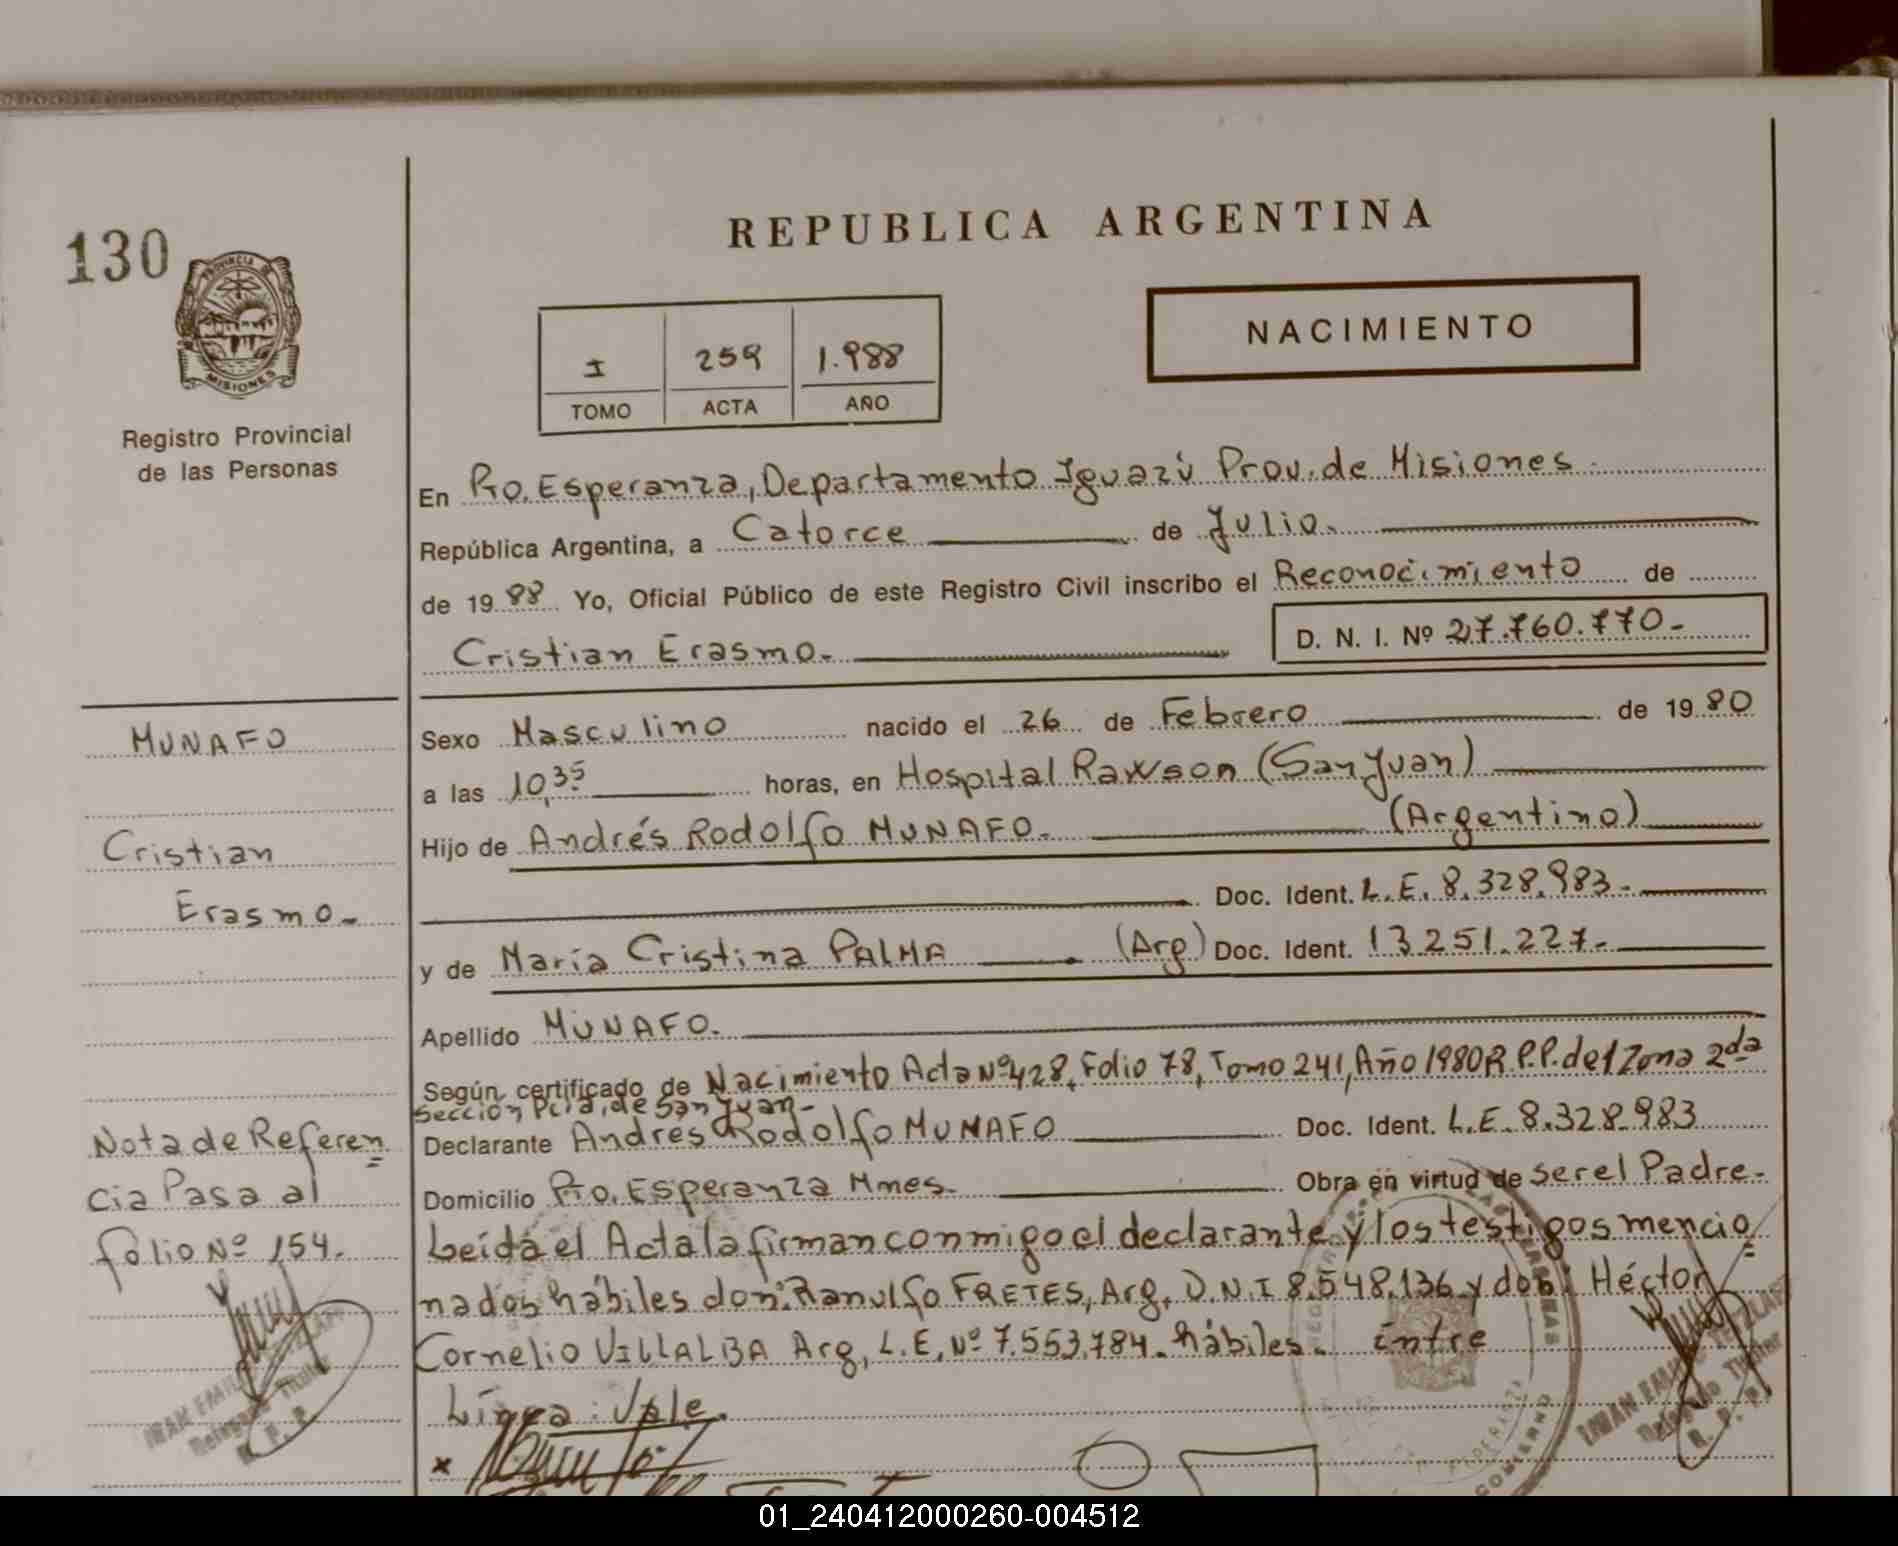 130
PROVINCIA DE
MISIONES
Registro Provincial
de las Personas
REPUBLICA ARGENTINA
I 259 1.988
TOMO ACTA AÑO
NACIMIENTO
En Pto. Esperanza, Departamento Iguazú Prov. de Misiones
República Argentina, a Catorce de Julio.
de 19 88 Yo, Oficial Público de este Registro Civil inscribo el Reconocimiento de
Cristian Erasmo.
D. N. I. Nº 27.760.770-
MUNAFO
Cristian
Erasmo-
Sexo Masculino nacido el 26 de Febrero de 19 80
a las 10,35 horas, en Hospital Rawson (San Juan)
Hijo de Andrés Rodolfo MUNAFO. (Argentino)
Doc. Ident. L.E. 8.328.983-
y de María Cristina PALMA (Arg) Doc. Ident. 13.251.227-
Apellido MUNAFO.
Según certificado de Nacimiento Acta Nº 428, Folio 78, Tomo 241, Año 1980 R.P.P. del Zona 2da
Sección Pcia, de San Juan-
Declarante Andrés Rodolfo MUNAFO Doc. Ident. L.E. 8.328.983
Domicilio Pto. Esperanza Mnes. Obra en virtud de ser el Padre-
Leída el Acta la firman conmigo el declarante y los testigos mencio
nados hábiles don: Ranulfo FRETES, Arg, D.N.I 8.548.136 y don: Héctor
Cornelio VILLALBA Arg, L.E, Nº 7.553.784. hábiles. Entre
Línea: Vale.
Nota de Referen
cia Pasa al
folio Nº 154.
Delegado Titular
R. P. P.
Delegado Titular
R. P. P.
GOBIERNO
01_240412000260-004512